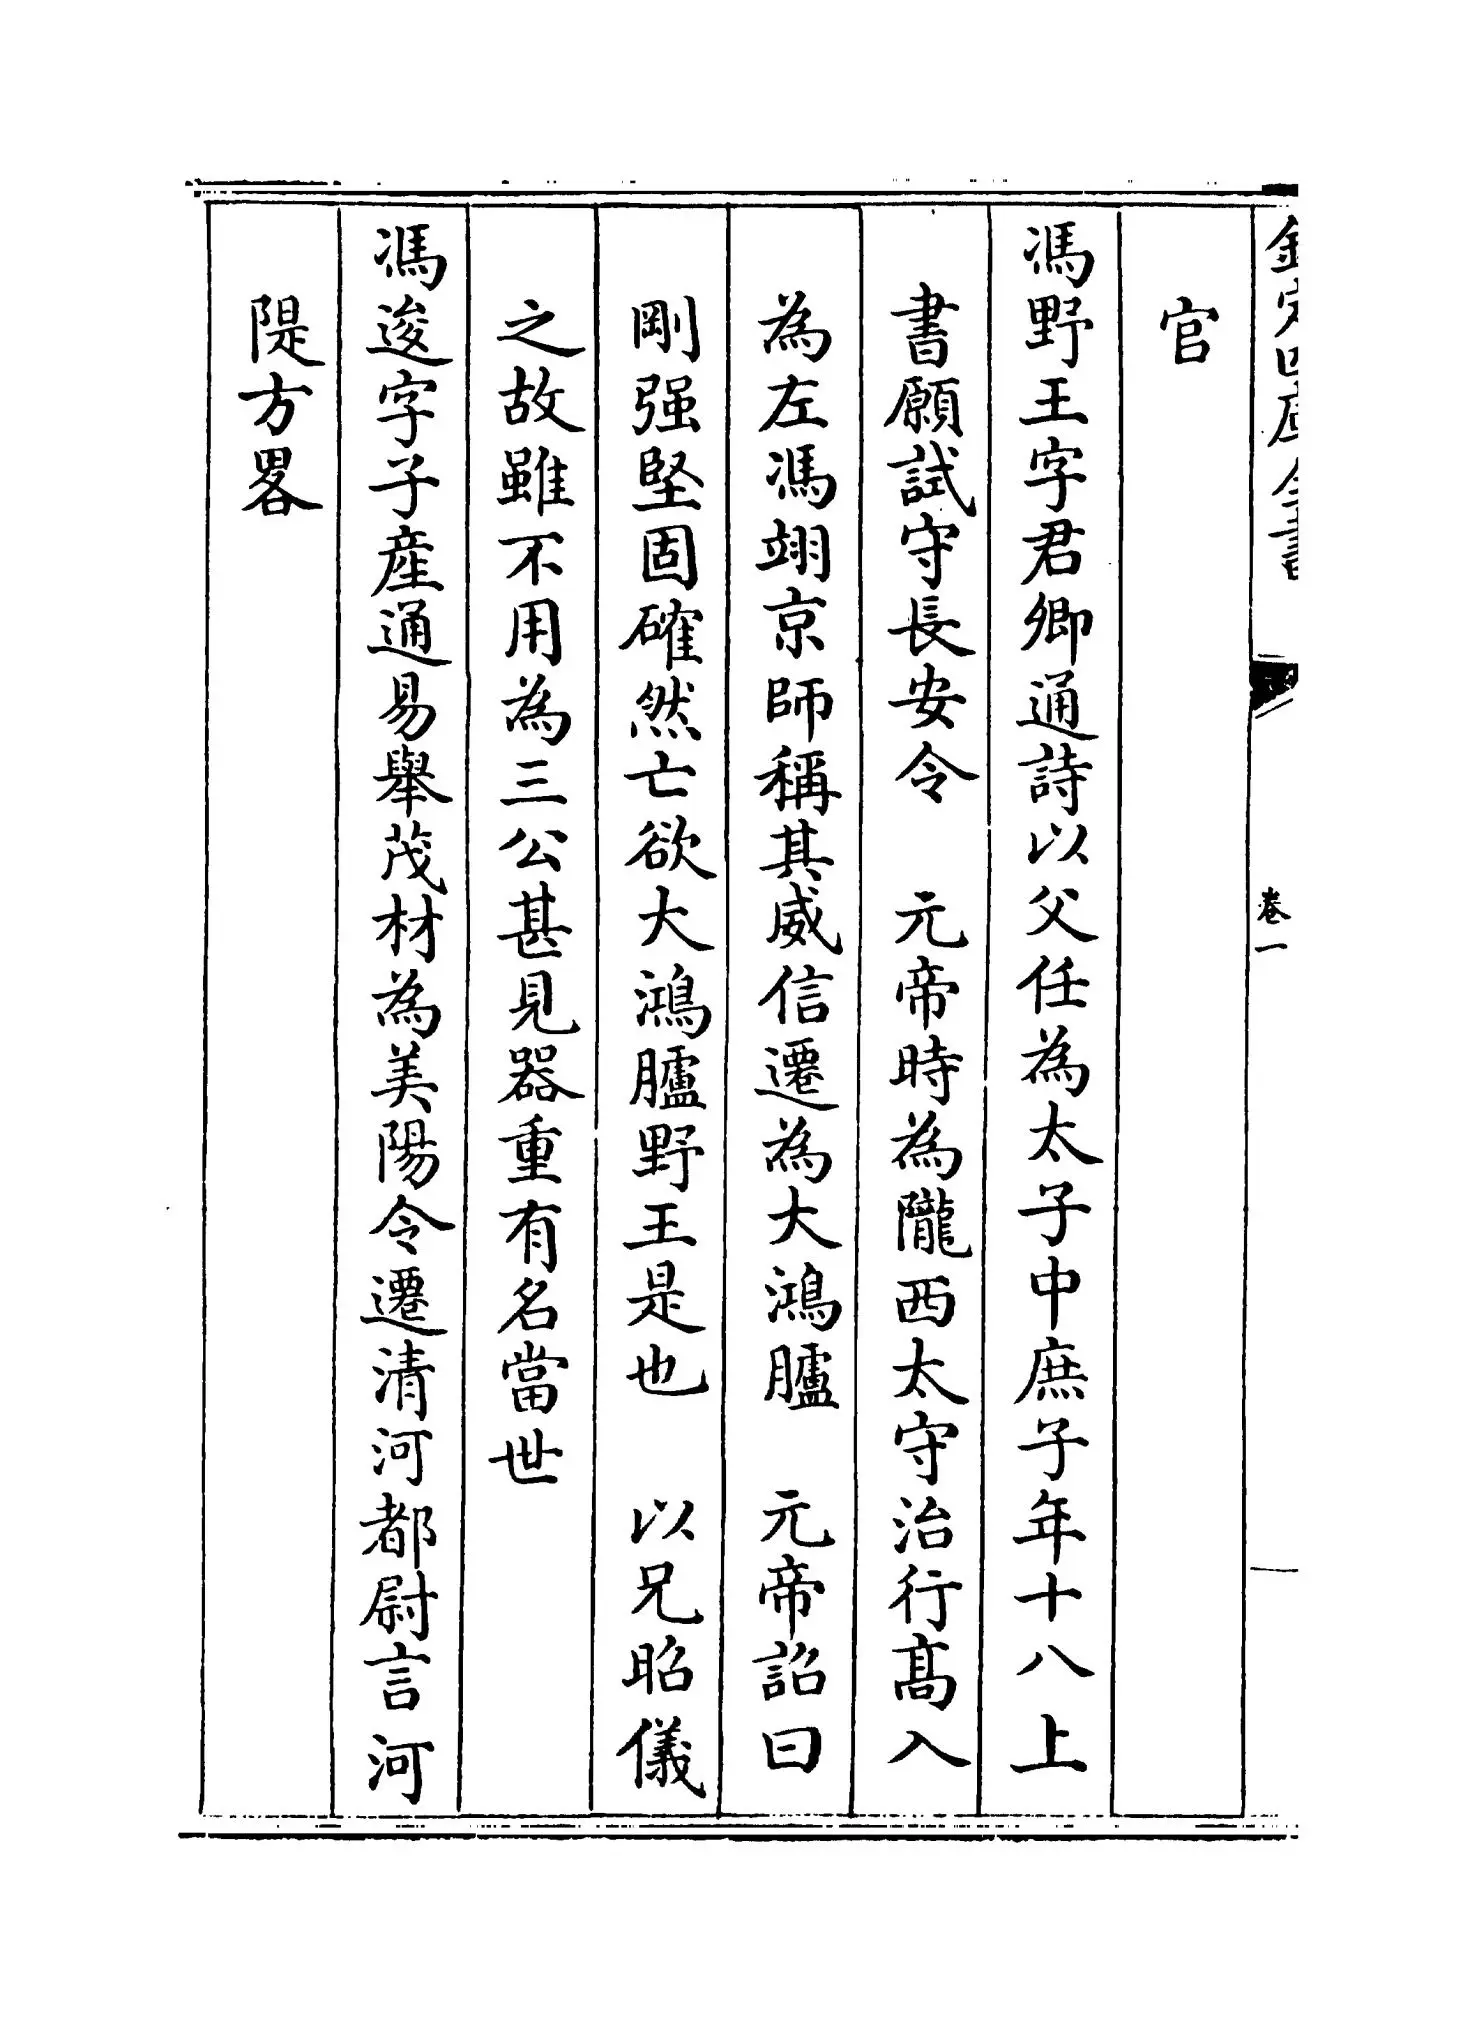 欽定四庫全書
卷一
官
馮野王字君卿通詩以父任為太子中庶子年十八上
書願試守長安令　元帝時為隴西太守治行高入
為左馮翊京師稱其威信遷為大鴻臚　元帝詔曰
剛强堅固確然亡欲大鴻臚野王是也　以兄昭儀
之故雖不用為三公甚見器重有名當世
馮逡字子產通易舉茂材為美陽令遷清河都尉言河
隄方畧